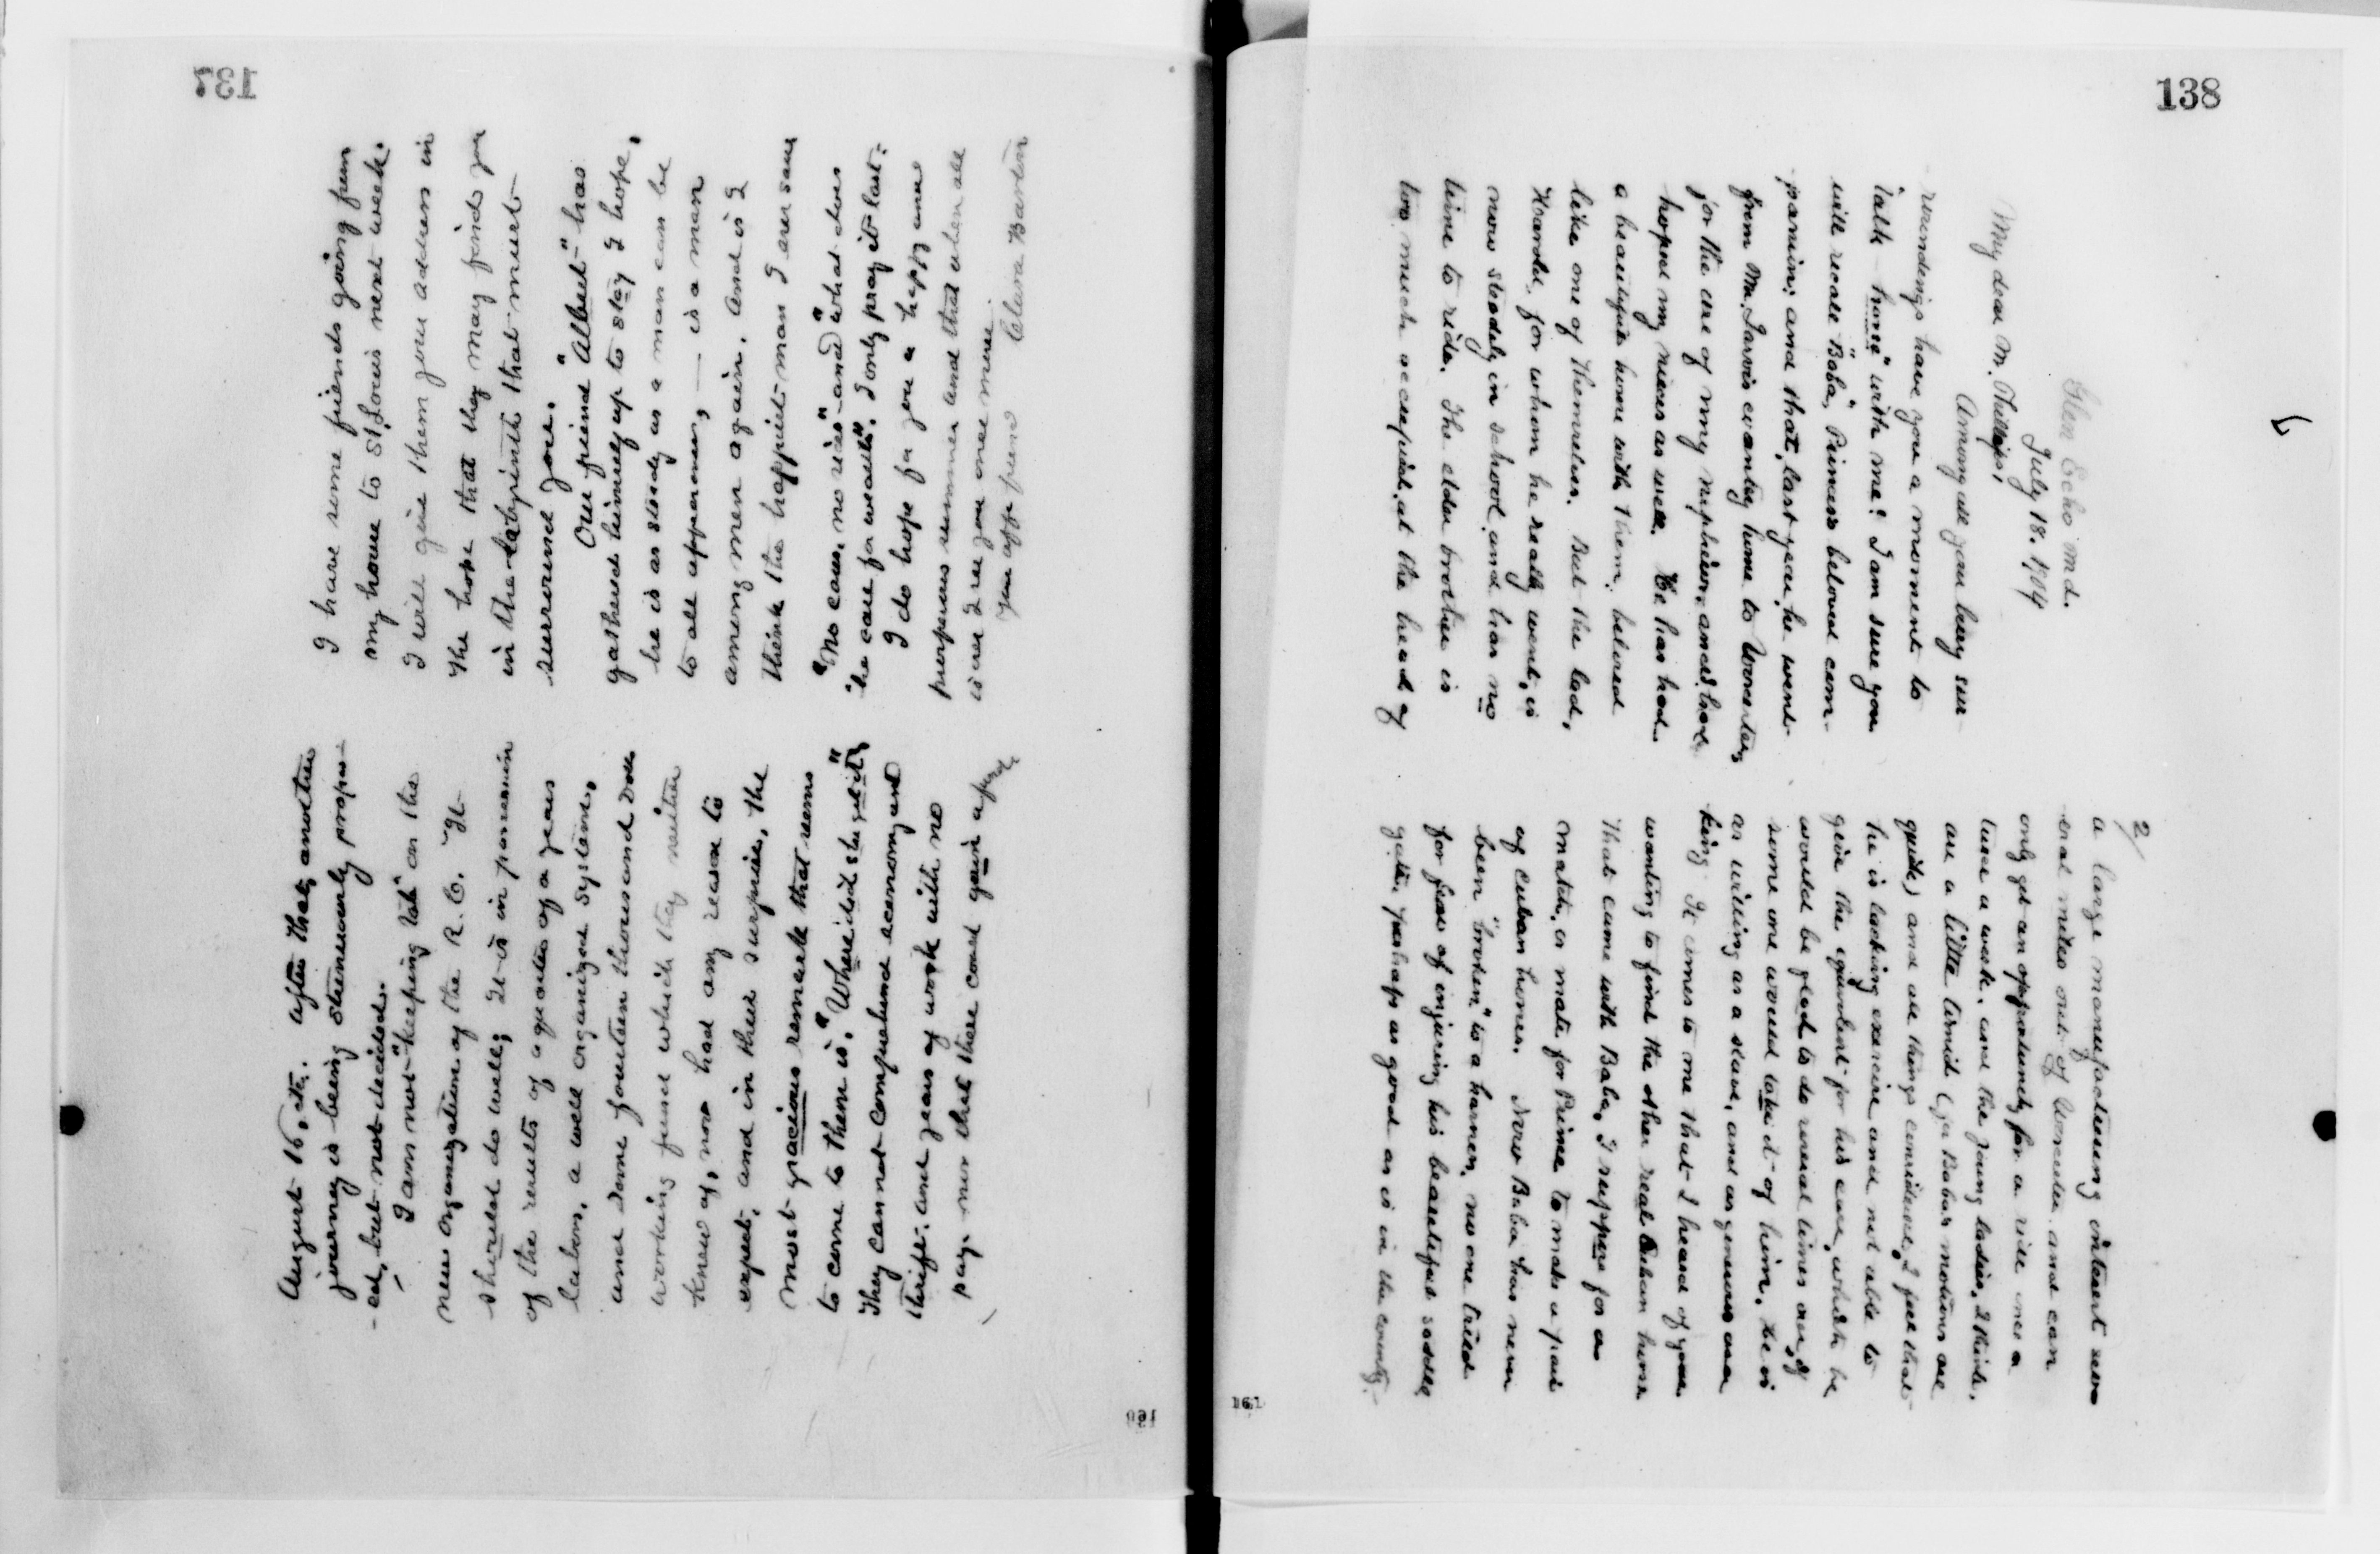 137
August 16, etc. after that, another
journey is being strenuously propos-
-ed, but not decided.
I am not "keeping tab" on the
new organization of the R. C. It
should do well; it is in possession
of the results of a quarter of a years
labors, a well organized system,
and some fourteen thousand dolls
working fund which they neither
knew of, nor had any reason to
expect, and in their surprise, the
most gracious remark that seems
to come to them is, "Where did she get it"
They cannot comprehend economy and
thrift, and years of work with no
pay, nor that there could gain a
I have some friends going from
my house to St. Louis next week.
I will give them your address in
the hope that they may find you
in the labyrinth that must
surround you.
Our friend "Albert" has
gathered himself up to stay I hope,
he is as steady as a man can be
to all appearances, — is a man
among men again. And is I
think the happiest man I ever saw
"No cows, no sins" and "what does
he care for wealth". I only pray it last.
I do hope for you a happy and
prosperous summer and that when all
is over I see you once more.
Your affe friend Clara Barton
138
Glen Echo Md.
July 18. 1904
My dear Mr. Phillips,
Among all your busy sur-
-roundings have you a moment to
talk "horse" with me? I am sure you
will recall "Baba," Princess beloved com-
-panion; and that, last year, he went
from Mr. Jarvis country home to Worcester,
for the use of my nephews, and I had
hoped my nieces as well. He has had
a beautiful home with them; beloved
like one of themselves. But the lad,
Harold, for whom he really went, is
now steadily in school and has no
time to ride. The elder brother is
too much occupied, at the head of
2/
a large manufacturing interest sev-
-eral miles out of Worcester and can
only get an opportunity for a ride once a
twice a week, and the young ladies, I think,
are a little timid (for Babas motions are
quick) and all things considered, I feel that
he is lacking exercise and not able to
give the equivalent for his care, which he
would be glad to do several times over, if
some one would take it of him. He is
as willing as a slave, and as generous as a
king. It comes to me that I heard of your
wanting to find the other real Cuban horse
that came with Baba, I suppose for a
match, or mate for Prince to make a pair
of Cuban horses. Now Baba has never
been "broken" to a harness, no one tried
for fear of injuring his beautiful saddle
gaits, perhaps as good as is in the country.